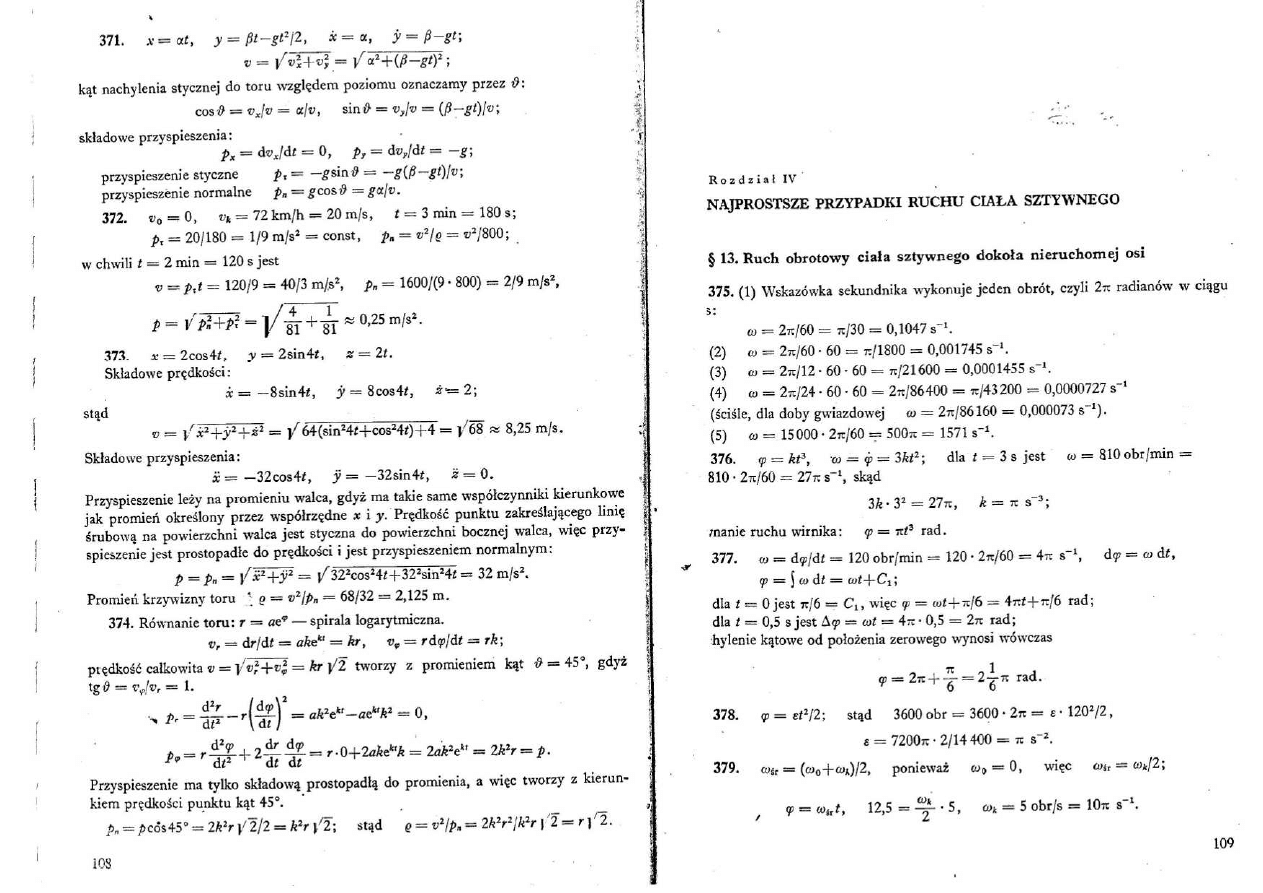 371. x = αt, y = βt−gt²/2, ẋ = α, ẏ = β−gt;
v = √(vₓ²+vᵧ²) = √(α²+(β−gt)²);
kąt nachylenia stycznej do toru względem poziomu oznaczamy przez ϑ:
cos ϑ = vₓ/v = α/v, sin ϑ = vᵧ/v = (β−gt)/v;
składowe przyspieszenia:
pₓ = dvₓ/dt = 0, pᵧ = dvᵧ/dt = −g;
przyspieszenie styczne pτ = −g sin ϑ = −g(β−gt)/v;
przyspieszenie normalne pₙ = g cos ϑ = gα/v.
372. v₀ = 0, vₖ = 72 km/h = 20 m/s, t = 3 min = 180 s;
pτ = 20/180 = 1/9 m/s² = const, pₙ = v²/ϱ = v²/800;
w chwili t = 2 min = 120 s jest
v = pτt = 120/9 = 40/3 m/s², pₙ = 1600/(9 · 800) = 2/9 m/s²,
p = √(pₙ²+pτ²) = √(4/81 + 1/81) ≈ 0,25 m/s².
373. x = 2cos4t, y = 2sin4t, z = 2t.
Składowe prędkości:
ẋ = −8sin4t, ẏ = 8cos4t, ż = 2;
stąd
v = √(ẋ²+ẏ²+ż²) = √(64(sin²4t+cos²4t)+4) = √68 ≈ 8,25 m/s.
Składowe przyspieszenia:
ẍ = −32cos4t, ÿ = −32sin4t, z̈ = 0.
Przyspieszenie leży na promieniu walca, gdyż ma takie same współczynniki kierunkowe
jak promień określony przez współrzędne x i y. Prędkość punktu zakreślającego linię
śrubową na powierzchni walca jest styczna do powierzchni bocznej walca, więc przy-
spieszenie jest prostopadłe do prędkości i jest przyspieszeniem normalnym:
p = pₙ = √(ẍ²+ÿ²) = √(32²cos²4t+32²sin²4t) = 32 m/s².
Promień krzywizny toru ϱ = v²/pₙ = 68/32 = 2,125 m.
374. Równanie toru: r = aeᵠ — spirala logarytmiczna.
vᵣ = dr/dt = akeᵏᵗ = kr, vᵩ = r dφ/dt = rk;
prędkość całkowita v = √(vᵣ²+vᵩ²) = kr√2 tworzy z promieniem kąt ϑ = 45°, gdyż
tg ϑ = vᵩ/vᵣ = 1.
pᵣ = d²r/dt² − r(dφ/dt)² = ak²eᵏᵗ−aeᵏᵗk² = 0,
pᵩ = r d²φ/dt² + 2 dr/dt dφ/dt = r·0+2akeᵏᵗk = 2ak²eᵏᵗ = 2k²r = p.
Przyspieszenie ma tylko składową prostopadłą do promienia, a więc tworzy z kierun-
kiem prędkości punktu kąt 45°.
pₙ = p cos45° = 2k²r√2/2 = k²r√2; stąd ϱ = v²/pₙ = 2k²r²/k²r√2 = r√2.
108
Rozdział IV
NAJPROSTSZE PRZYPADKI RUCHU CIAŁA SZTYWNEGO
§ 13. Ruch obrotowy ciała sztywnego dokoła nieruchomej osi
375. (1) Wskazówka sekundnika wykonuje jeden obrót, czyli 2π radianów w ciągu
s:
ω = 2π/60 = π/30 = 0,1047 s⁻¹.
(2) ω = 2π/60 · 60 = π/1800 = 0,001745 s⁻¹.
(3) ω = 2π/12 · 60 · 60 = π/21600 = 0,0001455 s⁻¹.
(4) ω = 2π/24 · 60 · 60 = 2π/86400 = π/43200 = 0,0000727 s⁻¹
(ściśle, dla doby gwiazdowej ω = 2π/86160 = 0,000073 s⁻¹).
(5) ω = 15000 · 2π/60 = 500π = 1571 s⁻¹.
376. φ = kt³, ω = φ̇ = 3kt²; dla t = 3 s jest ω = 810 obr/min =
810 · 2π/60 = 27π s⁻¹, skąd
3k · 3² = 27π, k = π s⁻³;
manie ruchu wirnika: φ = πt³ rad.
377. ω = dφ/dt = 120 obr/min = 120 · 2π/60 = 4π s⁻¹, dφ = ω dt,
φ = ∫ ω dt = ωt+C₁;
dla t = 0 jest π/6 = C₁, więc φ = ωt+π/6 = 4πt+π/6 rad;
dla t = 0,5 s jest Δφ = ωt = 4π · 0,5 = 2π rad;
hylenie kątowe od położenia zerowego wynosi wówczas
φ = 2π + π/6 = 2 1/6 π rad.
378. φ = εt²/2; stąd 3600 obr = 3600 · 2π = ε · 120²/2,
ε = 7200π · 2/14 400 = π s⁻².
379. ωśr = (ω₀+ωₖ)/2, ponieważ ω₀ = 0, więc ωśr = ωₖ/2;
φ = ωśrt, 12,5 = ωₖ/2 · 5, ωₖ = 5 obr/s = 10π s⁻¹.
109